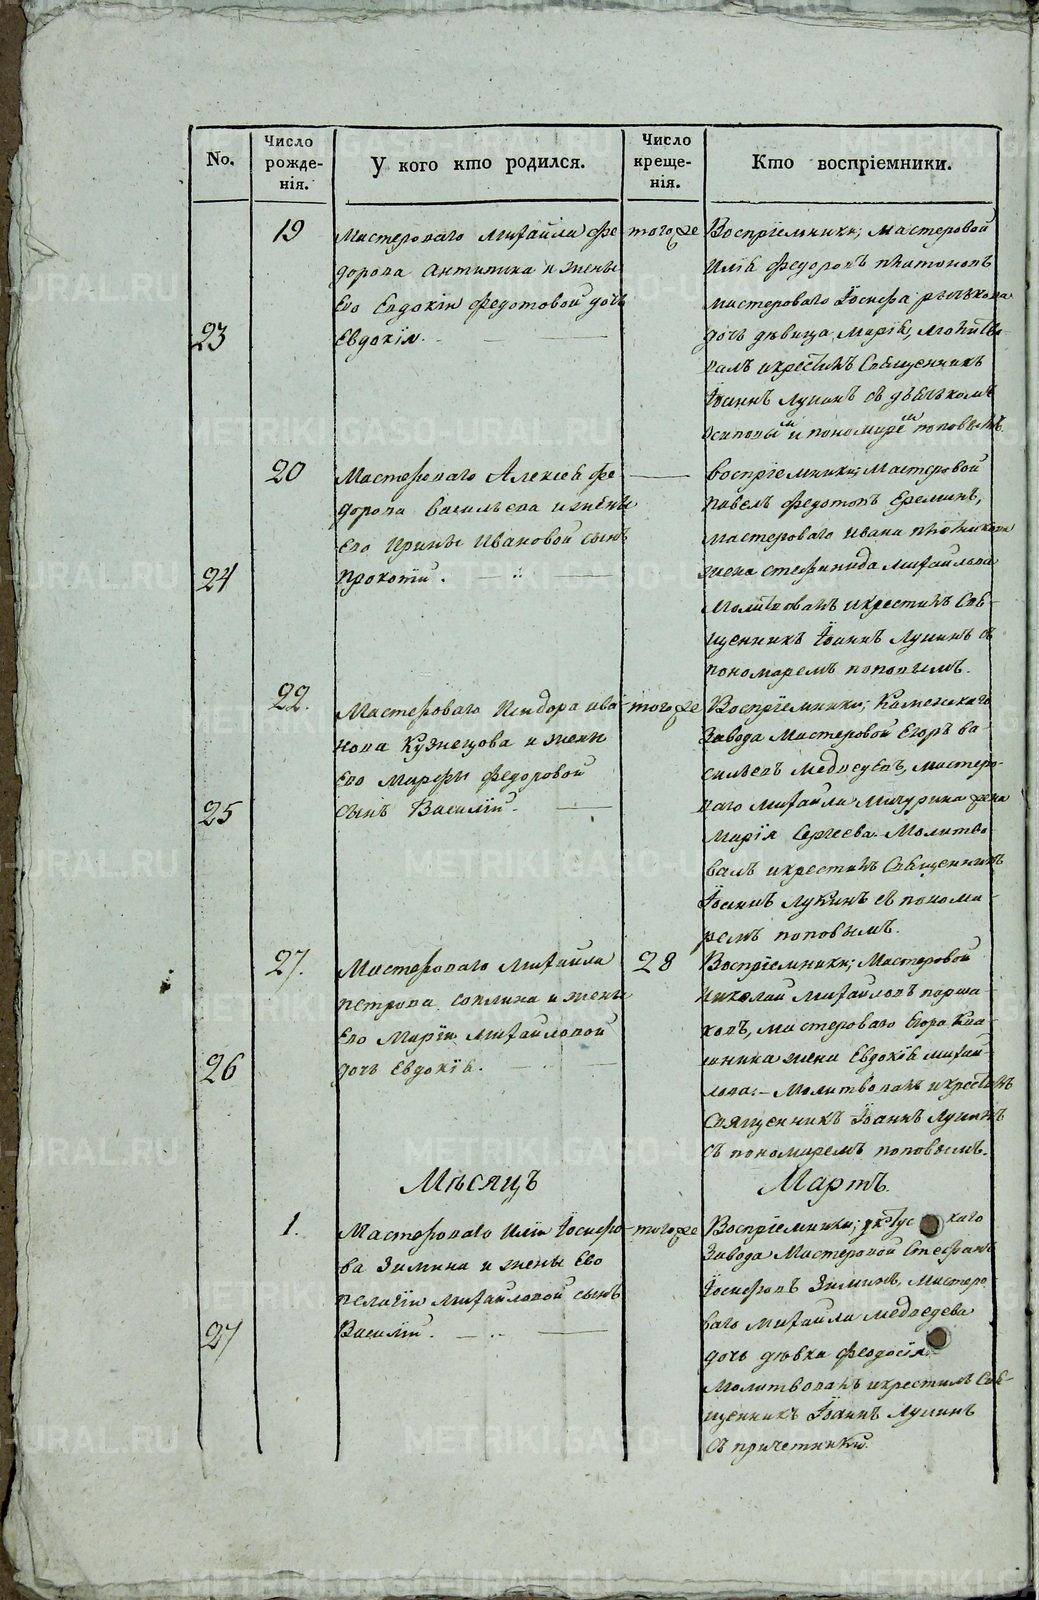 No.
Число рожде-нія.
У кого кто родился.
Число креще-нія.
Кто воспріемники.
23
19
Мастероваго Михайла Фе-
дорова Антипина и жены
Его Евдокіи Федотовой дочь
Евдокія.
тогоже
Воспріемники; мастеровой
Илія Федоровъ Платоновъ
мастероваго Іосифа
дочь дѣвица Марія, молитво-
валъ и крестилъ Священникъ
Іоаннъ Лукинъ съ дьячкомъ
Осиповымъ и пономаремъ поповымъ
24
20
Мастероваго Алексея Фе-
дорова Васильева и жены
Его Ирины Ивановой сынъ
Прокопій.
Воспріемники; Мастеровой
Павелъ Федотовъ Ереминъ,
мастероваго Ивана Плотникова
жена Стефанида Михайлова
Молитвовалъ и крестилъ Свя-
щенникъ Іоаннъ Лукинъ съ
пономаремъ поповымъ.
25
22.
Мастероваго Исидора Ива-
нова Кузнецова и жены
Его Марфы Федоровой
сынъ Василій.
тогоже
Воспріемники; Каменскаго
Завода Мастеровой Егоръ Ва-
сильевъ Медведевъ, мастеро-
ваго Михайла Мичурина жена
Марія Сергеева. Молитво-
валъ и крестилъ Священникъ
Іоаннъ Лукинъ съ понома-
ремъ поповымъ.
26
27.
Мастероваго Михайла
Петрова и жены
Его Маріи Михайловой
дочь Евдокія.
28
Воспріемники; Мастеровой
Николай Михайловъ Парша-
ковъ, мастероваго Егора Ква-
шнина жена Евдокія Михай-
лова. Молитвовалъ и крестилъ
Священникъ Іоаннъ Лукинъ
съ пономаремъ поповымъ.
Мѣсяцъ Мартъ.
27
1.
Мастероваго Иліи Іосифо-
ва Зимина и жены Его
Пелагіи Михайловой сынъ
Василій.
тогоже
Воспріемники; каго
Завода Мастеровой Стефанъ
Іосифовъ Зиминъ, мастеро-
ваго Михайла Медведева
дочь дѣвка Феодосія.
Молитвовалъ и крестилъ Свя-
щенникъ Іоаннъ Лукинъ
съ причетники.
METRIKI.GASO-URAL.RU